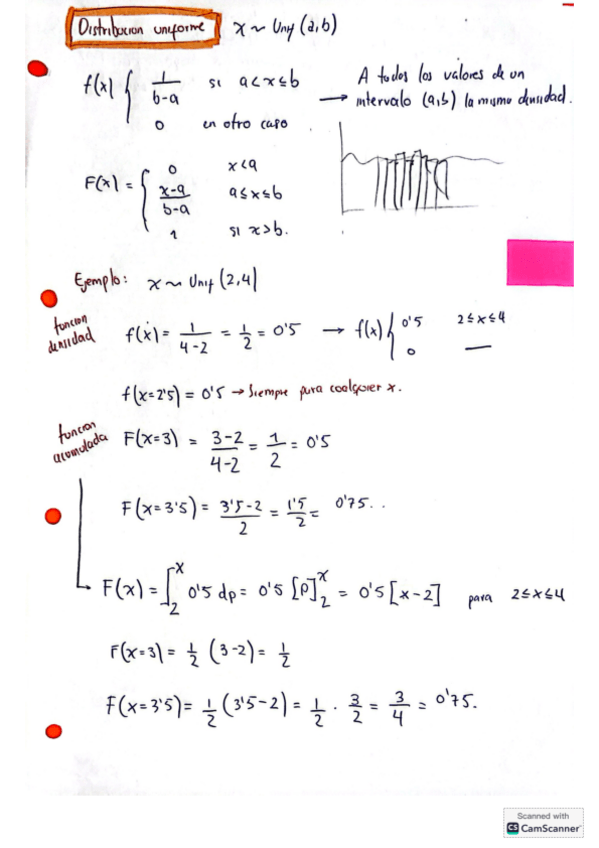 Distribucion uniforme x ~ Unif (a,b)
f(x) { 1/(b-a) si a<x≤b
0 en otro caso
A todos los valores de un
→ intervalo (a,b) la misma densidad.
F(x) = { 0 x<a
(x-a)/(b-a) a≤x≤b
1 si x>b.
Ejemplo: x ~ Unif (2,4)
funcion densidad
f(x) = 1/(4-2) = 1/2 = 0'5 → f(x) { 0'5 2≤x≤4
0 —
f(x=2'5) = 0'5 → Siempre para coalquier x.
funcion acomulada
F(x=3) = (3-2)/(4-2) = 1/2 = 0'5
F(x=3'5) = (3'5-2)/2 = 1'5/2 = 0'75..
F(x) = ∫₂ˣ 0'5 dp = 0'5 [p]₂ˣ = 0'5 [x-2] para 2≤x≤4
F(x=3) = 1/2 (3-2) = 1/2
F(x=3'5) = 1/2 (3'5-2) = 1/2 · 3/2 = 3/4 = 0'75.
Scanned with
CS CamScanner